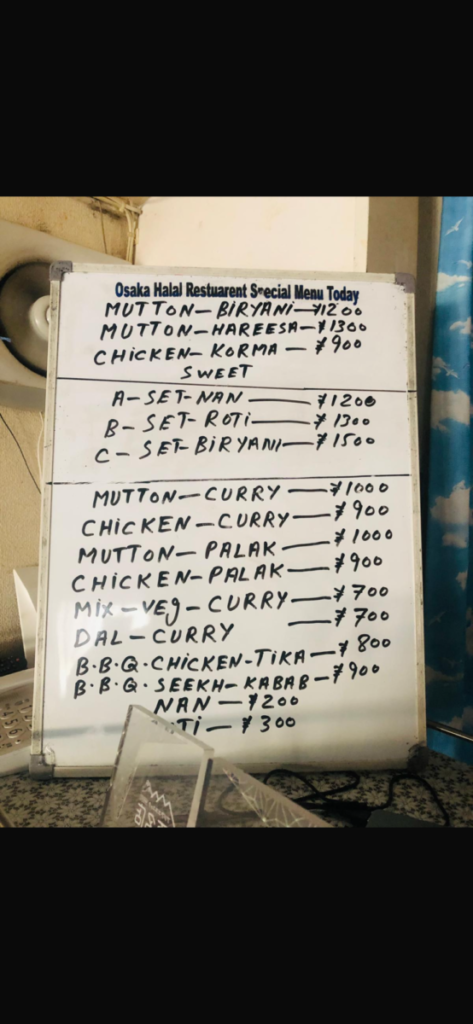 Osaka Halal Restuarent Special Menu Today
MUTTON-BIRYANI-¥1200
MUTTON-HAREESA-¥1300
CHICKEN-KORMA-¥900
SWEET
A-SET-NAN-¥1200
B-SET-ROTI-¥1300
C-SET-BIRYANI-¥1500
MUTTON-CURRY-¥1000
CHICKEN-CURRY-¥900
MUTTON-PALAK-¥1000
CHICKEN-PALAK-¥900
MIX-VEg-CURRY-¥700
DAL-CURRY -¥700
B.B.Q.CHICKEN-TIKA-¥800
B.B.Q.SEEKH-KABAB-¥900
NAN-¥200
TI-¥300